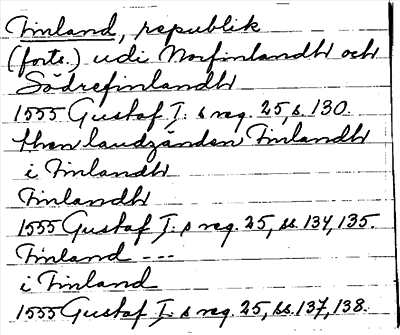 Finland, republik
(forts.) udi Norfinlandh och
Södrefinlandh
1555 Gustaf I:s reg. 25, s. 130.
then landzänden Finlandh
i Finlandh
Finlandh
1555 Gustaf I:s reg. 25, ss. 134, 135.
Finland ---
i Finland
1555 Gustaf I:s reg. 25, ss. 137, 138.